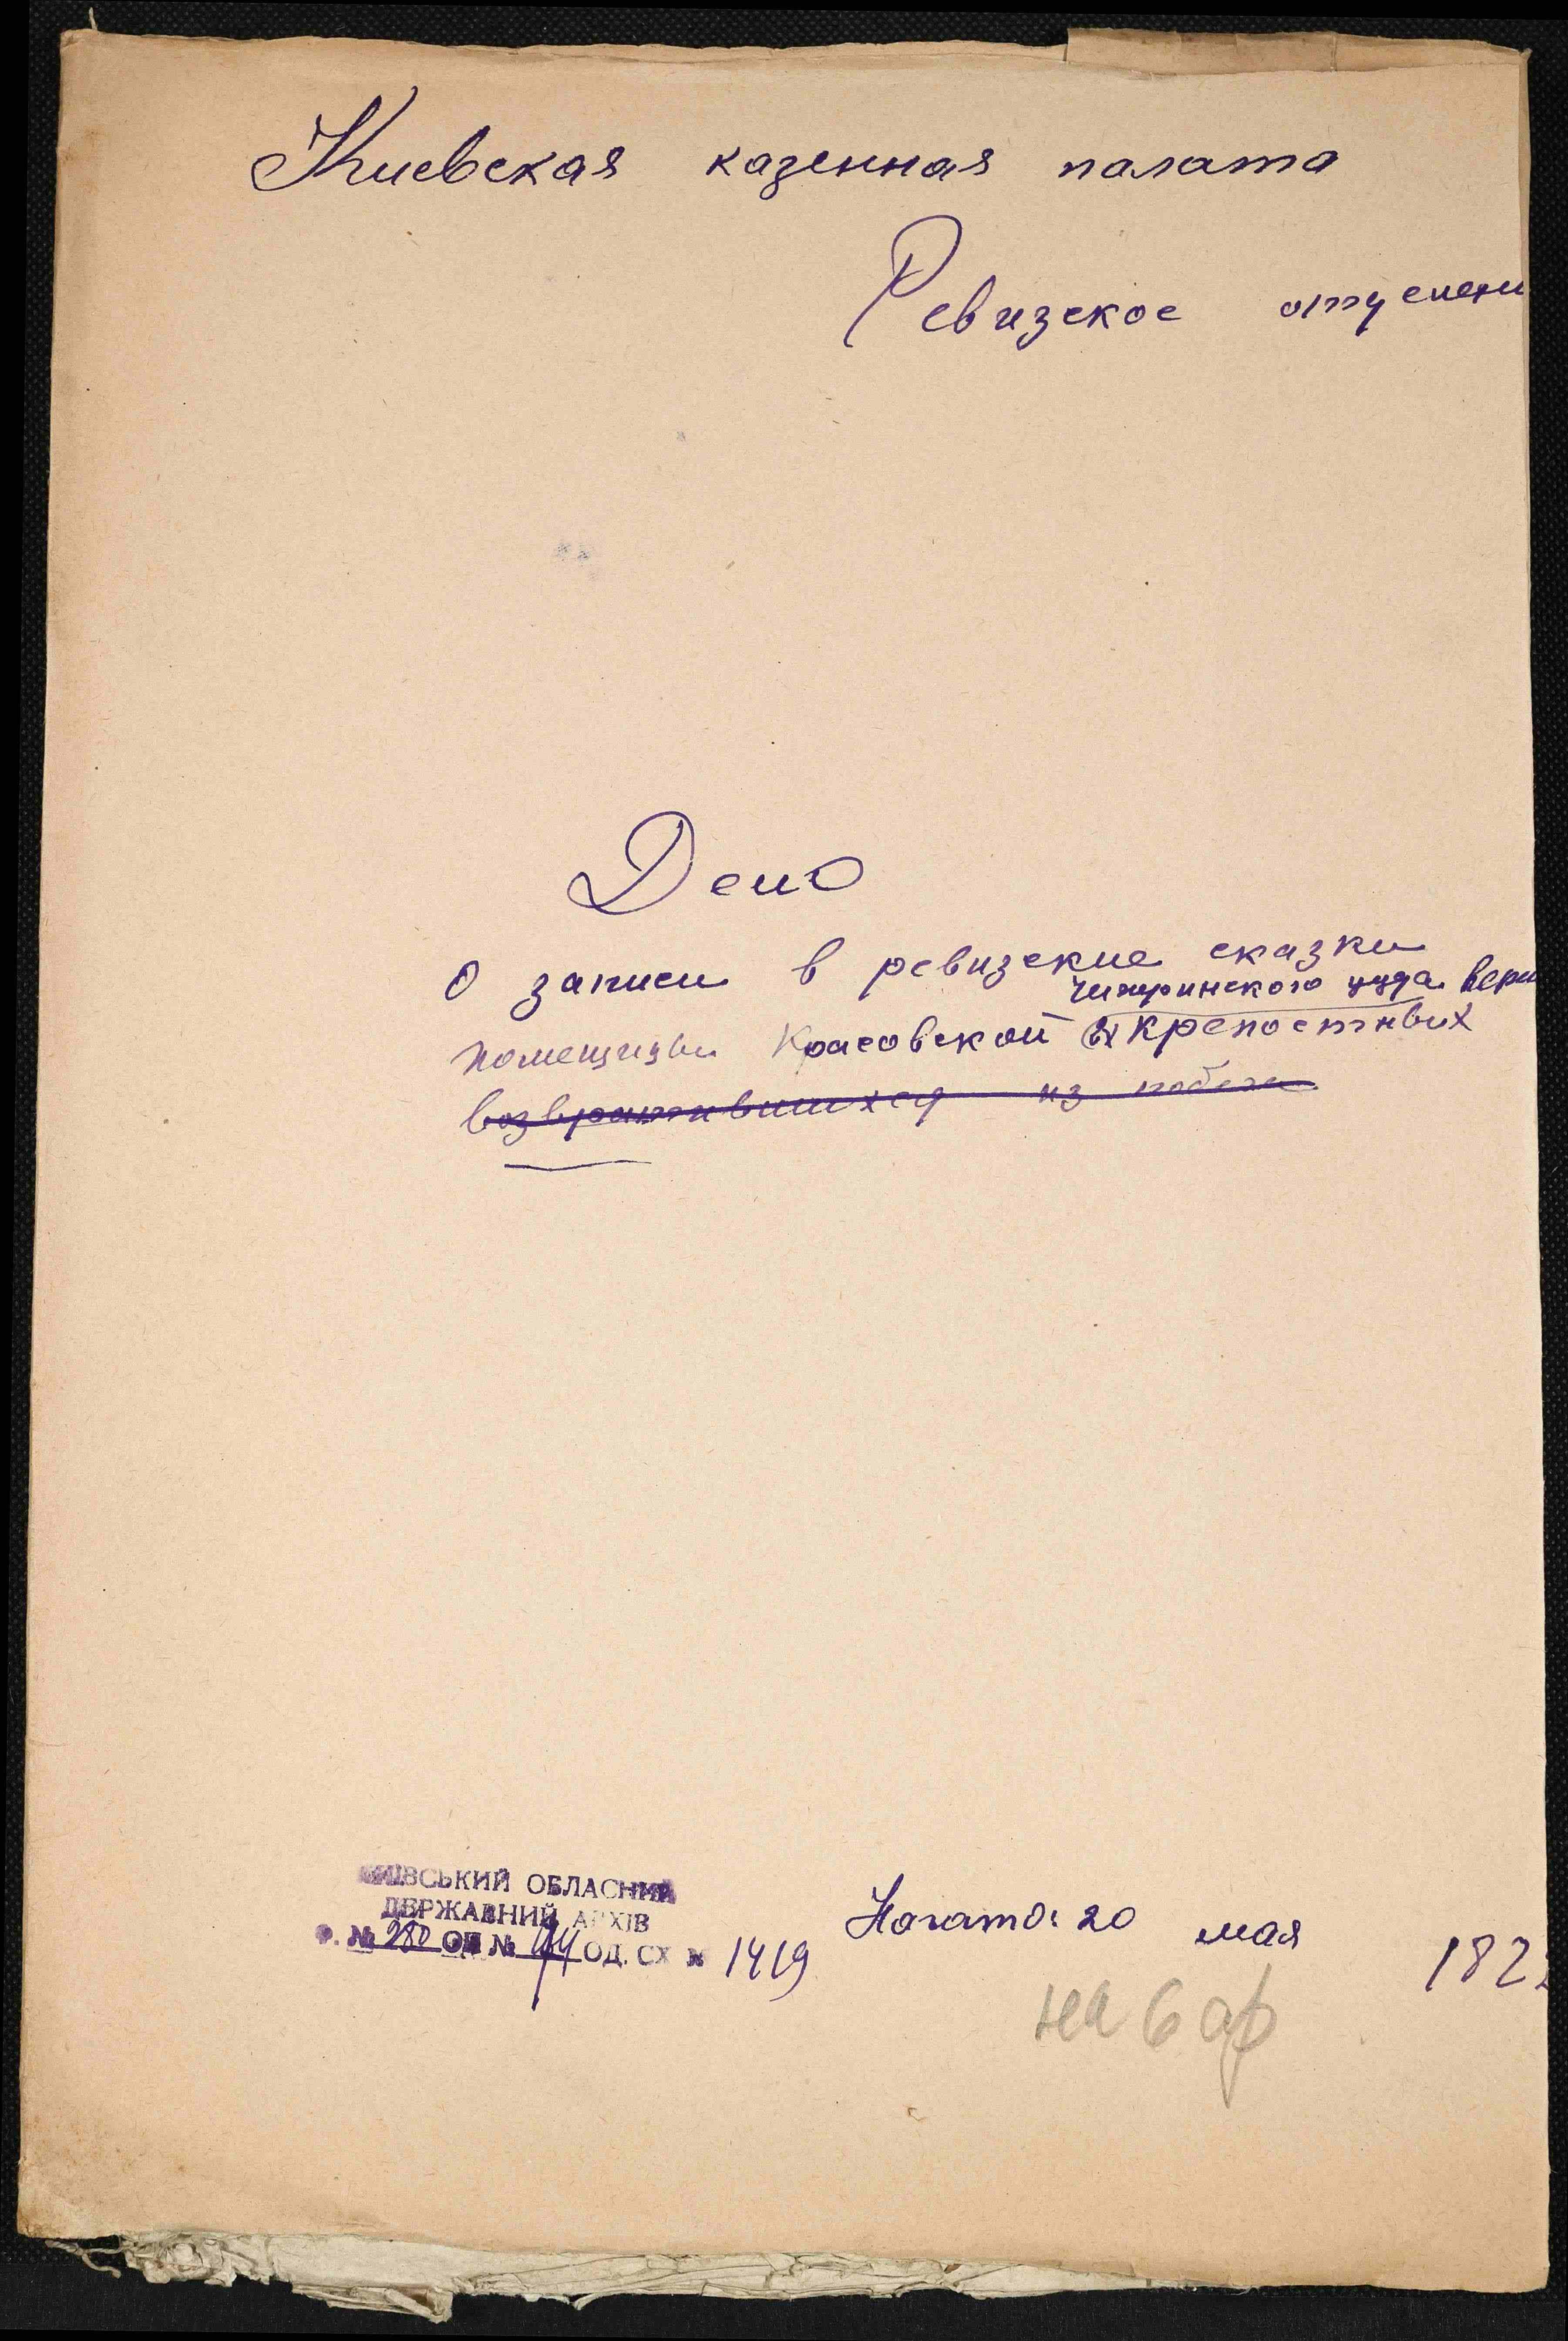 Киевская казенная палата
Ревизское отделени
Дело
О записи в ревизские сказки
Чигиринского уезда верн
помещицы Красовской крепостных
возвратившихся из побега
КИЇВСЬКИЙ ОБЛАСНИЙ
ДЕРЖАВНИЙ АРХІВ
Ф. № 280 ОП № 174 ОД. СХ № 1419
Начато: 20 мая 182
на 6 арк